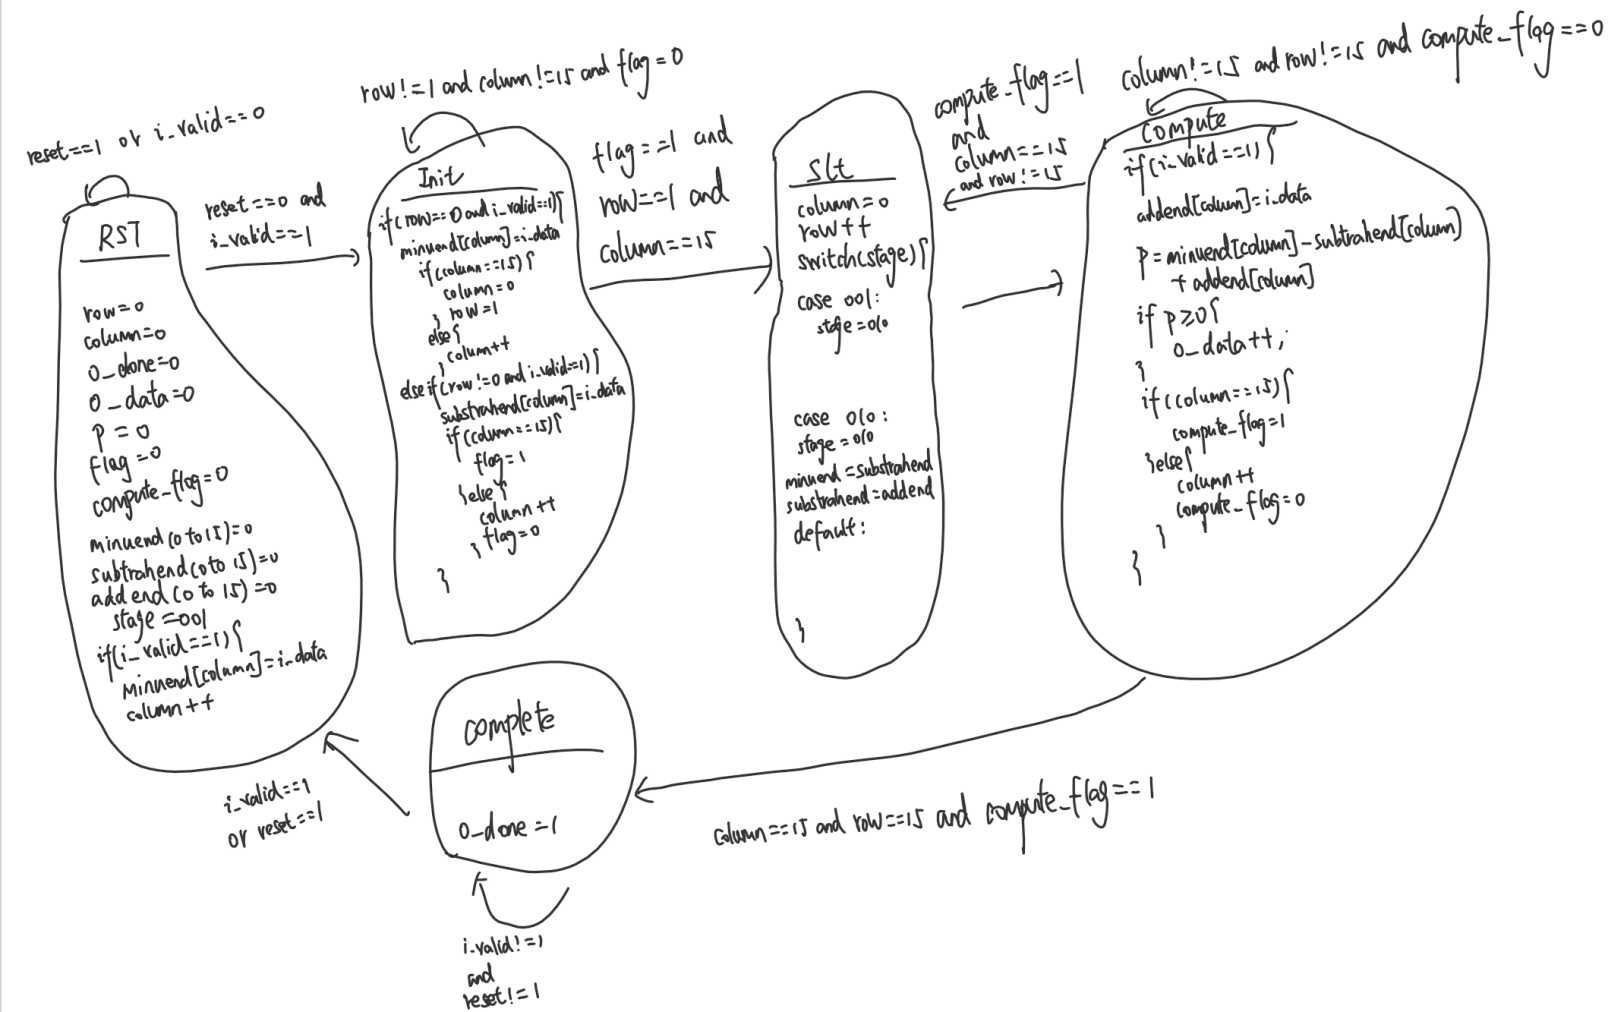 reset==1 or i_valid==0
RST
row=0
column=0
o_done=0
o_data=0
p=0
flag=0
compute_flag=0
minuend(0 to 15)=0
subtrahend(0 to 15)=0
addend(0 to 15)=0
stage=001
if(i_valid==1){
minuend[column]=i_data
column++
reset==0 and
i_valid==1
row!=1 and column!=15 and flag=0
Init
if(row==0 and i_valid==1){
minuend[column]=i_data
if(column==15){
column=0
} row=1
else{
} column++
else if(row!=0 and i_valid==1){
substrahend[column]=i_data
if(column==15){
flag=1
}else{
column++
} flag=0
}
flag==1 and
row==1 and
column==15
slt
column=0
row++
switch(stage){
case 001:
stage=010
case 010:
stage=010
minuend=substrahend
substrahend=addend
default:
}
compute_flag==1
and
column==15
and row!=15
column!=15 and row!=15 and compute_flag==0
compute
if(i_valid==1){
addend[column]=i_data
p=minuend[column]-subtrahend[column]
+addend[column]
if p≥0{
o_data++;
}
if(column==15){
compute_flag=1
}else{
column++
compute_flag=0
}
}
column==15 and row==15 and compute_flag==1
complete
o_done=1
i_valid==1
or reset==1
i_valid!=1
and
reset!=1